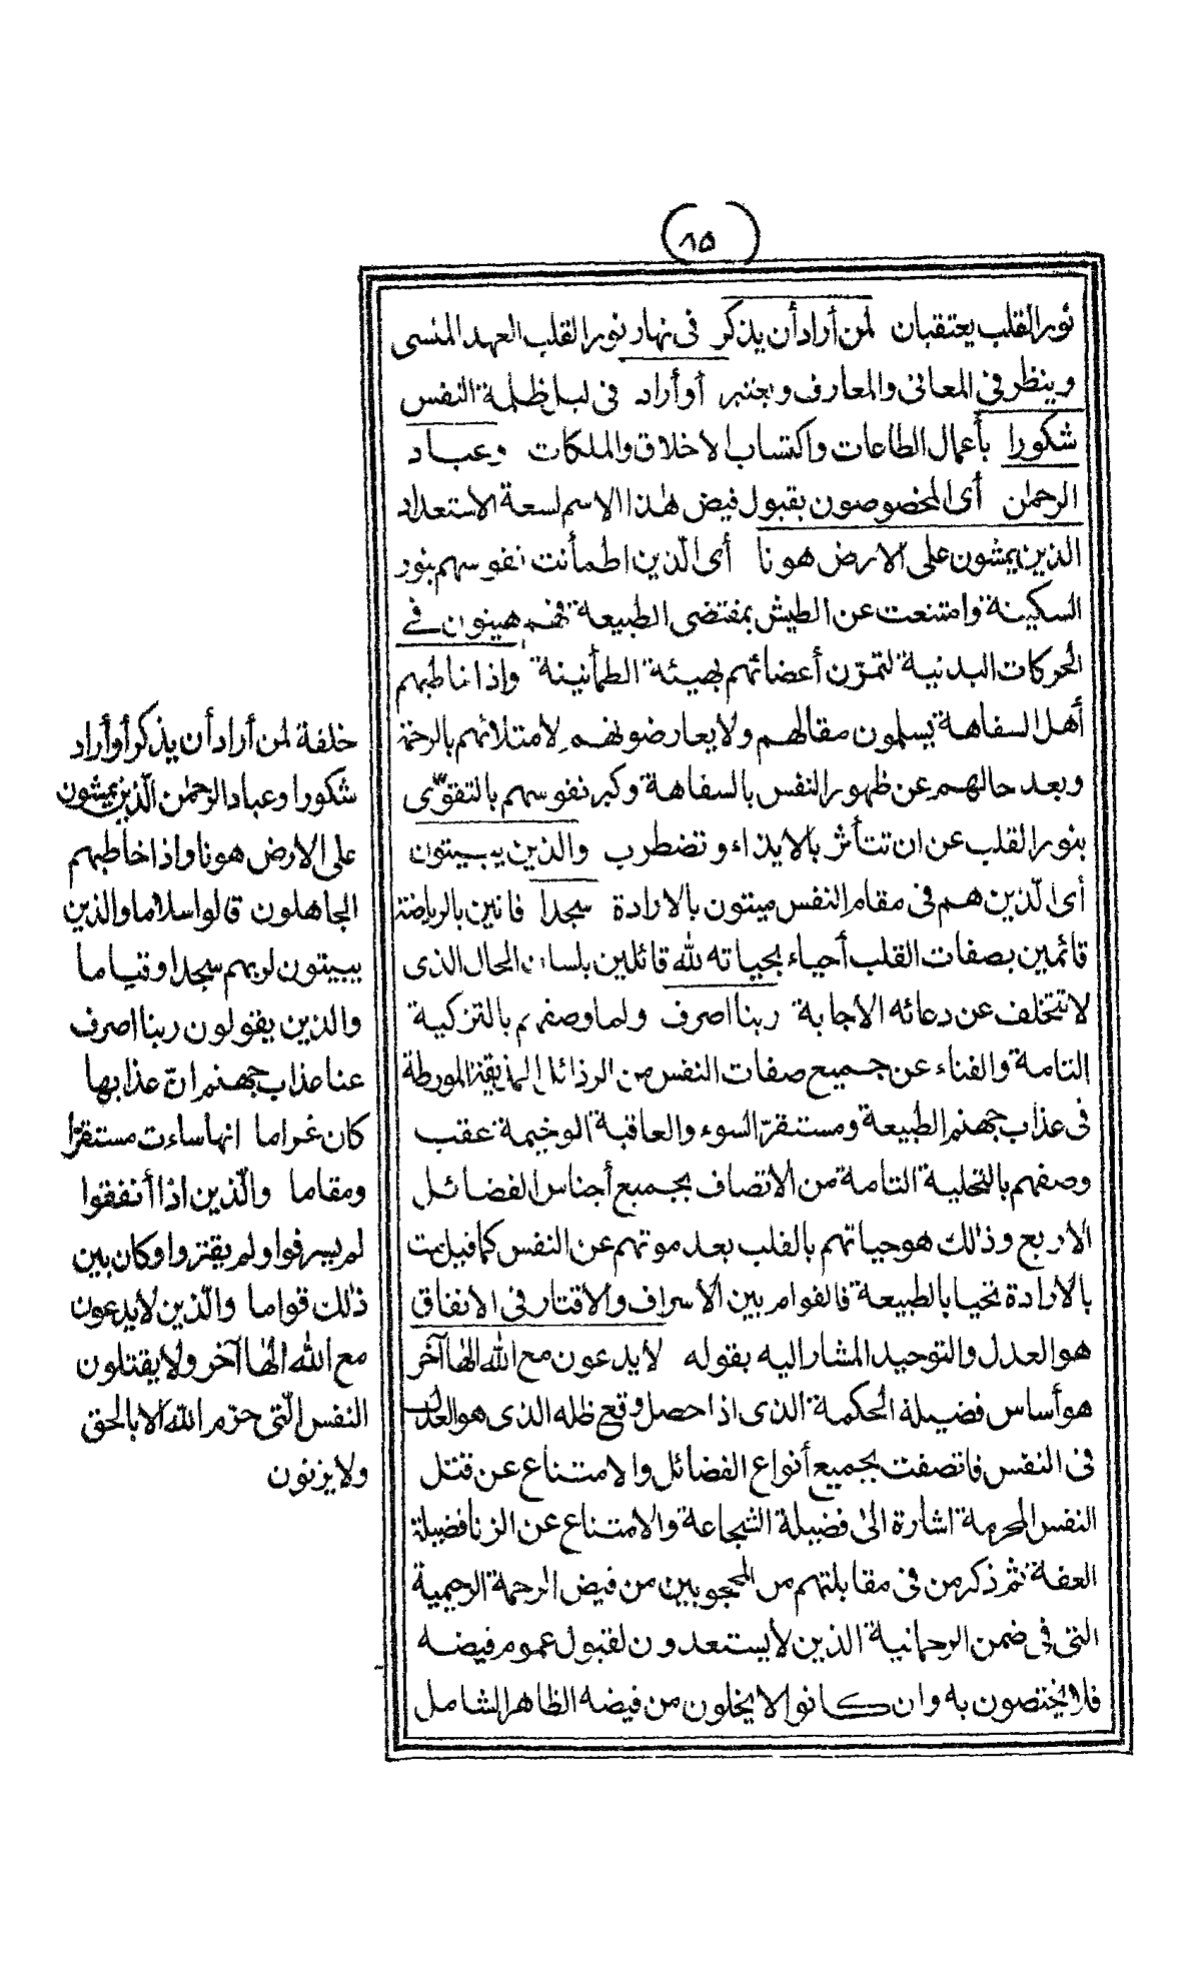 (٨٥)
نور القلب يعتقبان لمن أراد أن يذكر في نهار نور القلب العهد المنسى
وينظر في المعانى والمعارف ويعتبر أو أراد في ليل ظلمة النفس
شكورا بأعمال الطاعات واكتساب الاخلاق والملكات وعباد
الرحمٰن أى المخصوصون بقبول فيض هٰذا الاسم لسعة الاستعداد
الذين يمشون على الارض هونا أى الّذين اطمأنت نفوسهم بنور
السكينة وامتنعت عن الطيش بمقتضى الطبيعة فهم هينون في
الحركات البدنية لتمرّن أعضائهم بهيئة الطمأنينة واذا خاطبهم
أهل السفاهة يسلمون مقالهم ولا يعارضونهم لامتلائهم بالرحمة
وبعد حالهم عن ظهور النفس بالسفاهة وكبر نفوسهم بالتقوّى
بنور القلب عن ان تتأثر بالايذاء وتضطرب والذين يبيتون
أى الّذين هم في مقام النفس ميتون بالارادة سجدا فانين بالرياضة
قائمين بصفات القلب أحياء بحياته لله قائلين بلسان الحال الذى
لا تتخلف عن دعائه الاجابة ربنا اصرف ولما وصفهم بالتزكية
التامة والفناء عن جميع صفات النفس من الرذائل المورطة
فى عذاب جهنم الطبيعة ومستقرّ السوء والعاقبة الوخيمة عقب
وصفهم بالتحلية التامة من الاتصاف بجميع أجناس الفضائل
الاربع وذٰلك هو حياتهم بالقلب بعد موتهم عن النفس كما قيل مت
بالارادة تحيا بالطبيعة فالقوام بين الأسراف والاقتار فى الانفاق
هو العدل والتوحيد المشار اليه بقوله لا يدعون مع الله الهٰا آخر
هو أساس فضيلة الحكمة الذى اذا حصل وقع ظله الذى هو العدل
فى النفس فاتصفت بجميع أنواع الفضائل والامتناع عن قتل
النفس المحرمة اشارة الىٰ فضيلة الشجاعة والامتناع عن الزنا فضيلة
العفة ثم ذكر من في مقابلتهم من المحجوبين من فيض الرحمة الرحيمية
التى فى ضمن الرحمانية الذين لا يستعدون لقبول عموم فيضه
فلا يختصون به وان كانوا لا يخلون من فيضه الظاهر الشامل
خلفة لمن أراد أن يذكر أو أراد
شكورا وعباد الرحمٰن الّذين يمشون
على الارض هونا واذا خاطبهم
الجاهلون قالوا سلاما والذين
يبيتون لربهم سجدا وقياما
والذين يقولون ربنا اصرف
عنا عذاب جهنم انّ عذابها
كان غراما انها ساءت مستقرّا
ومقاما والّذين اذا أنفقوا
لم يسرفوا ولم يقتروا وكان بين
ذٰلك قواما والّذين لا يدعون
مع الله الهٰا آخر ولا يقتلون
النفس الّتى حرّم الله الا بالحق
ولا يزنون